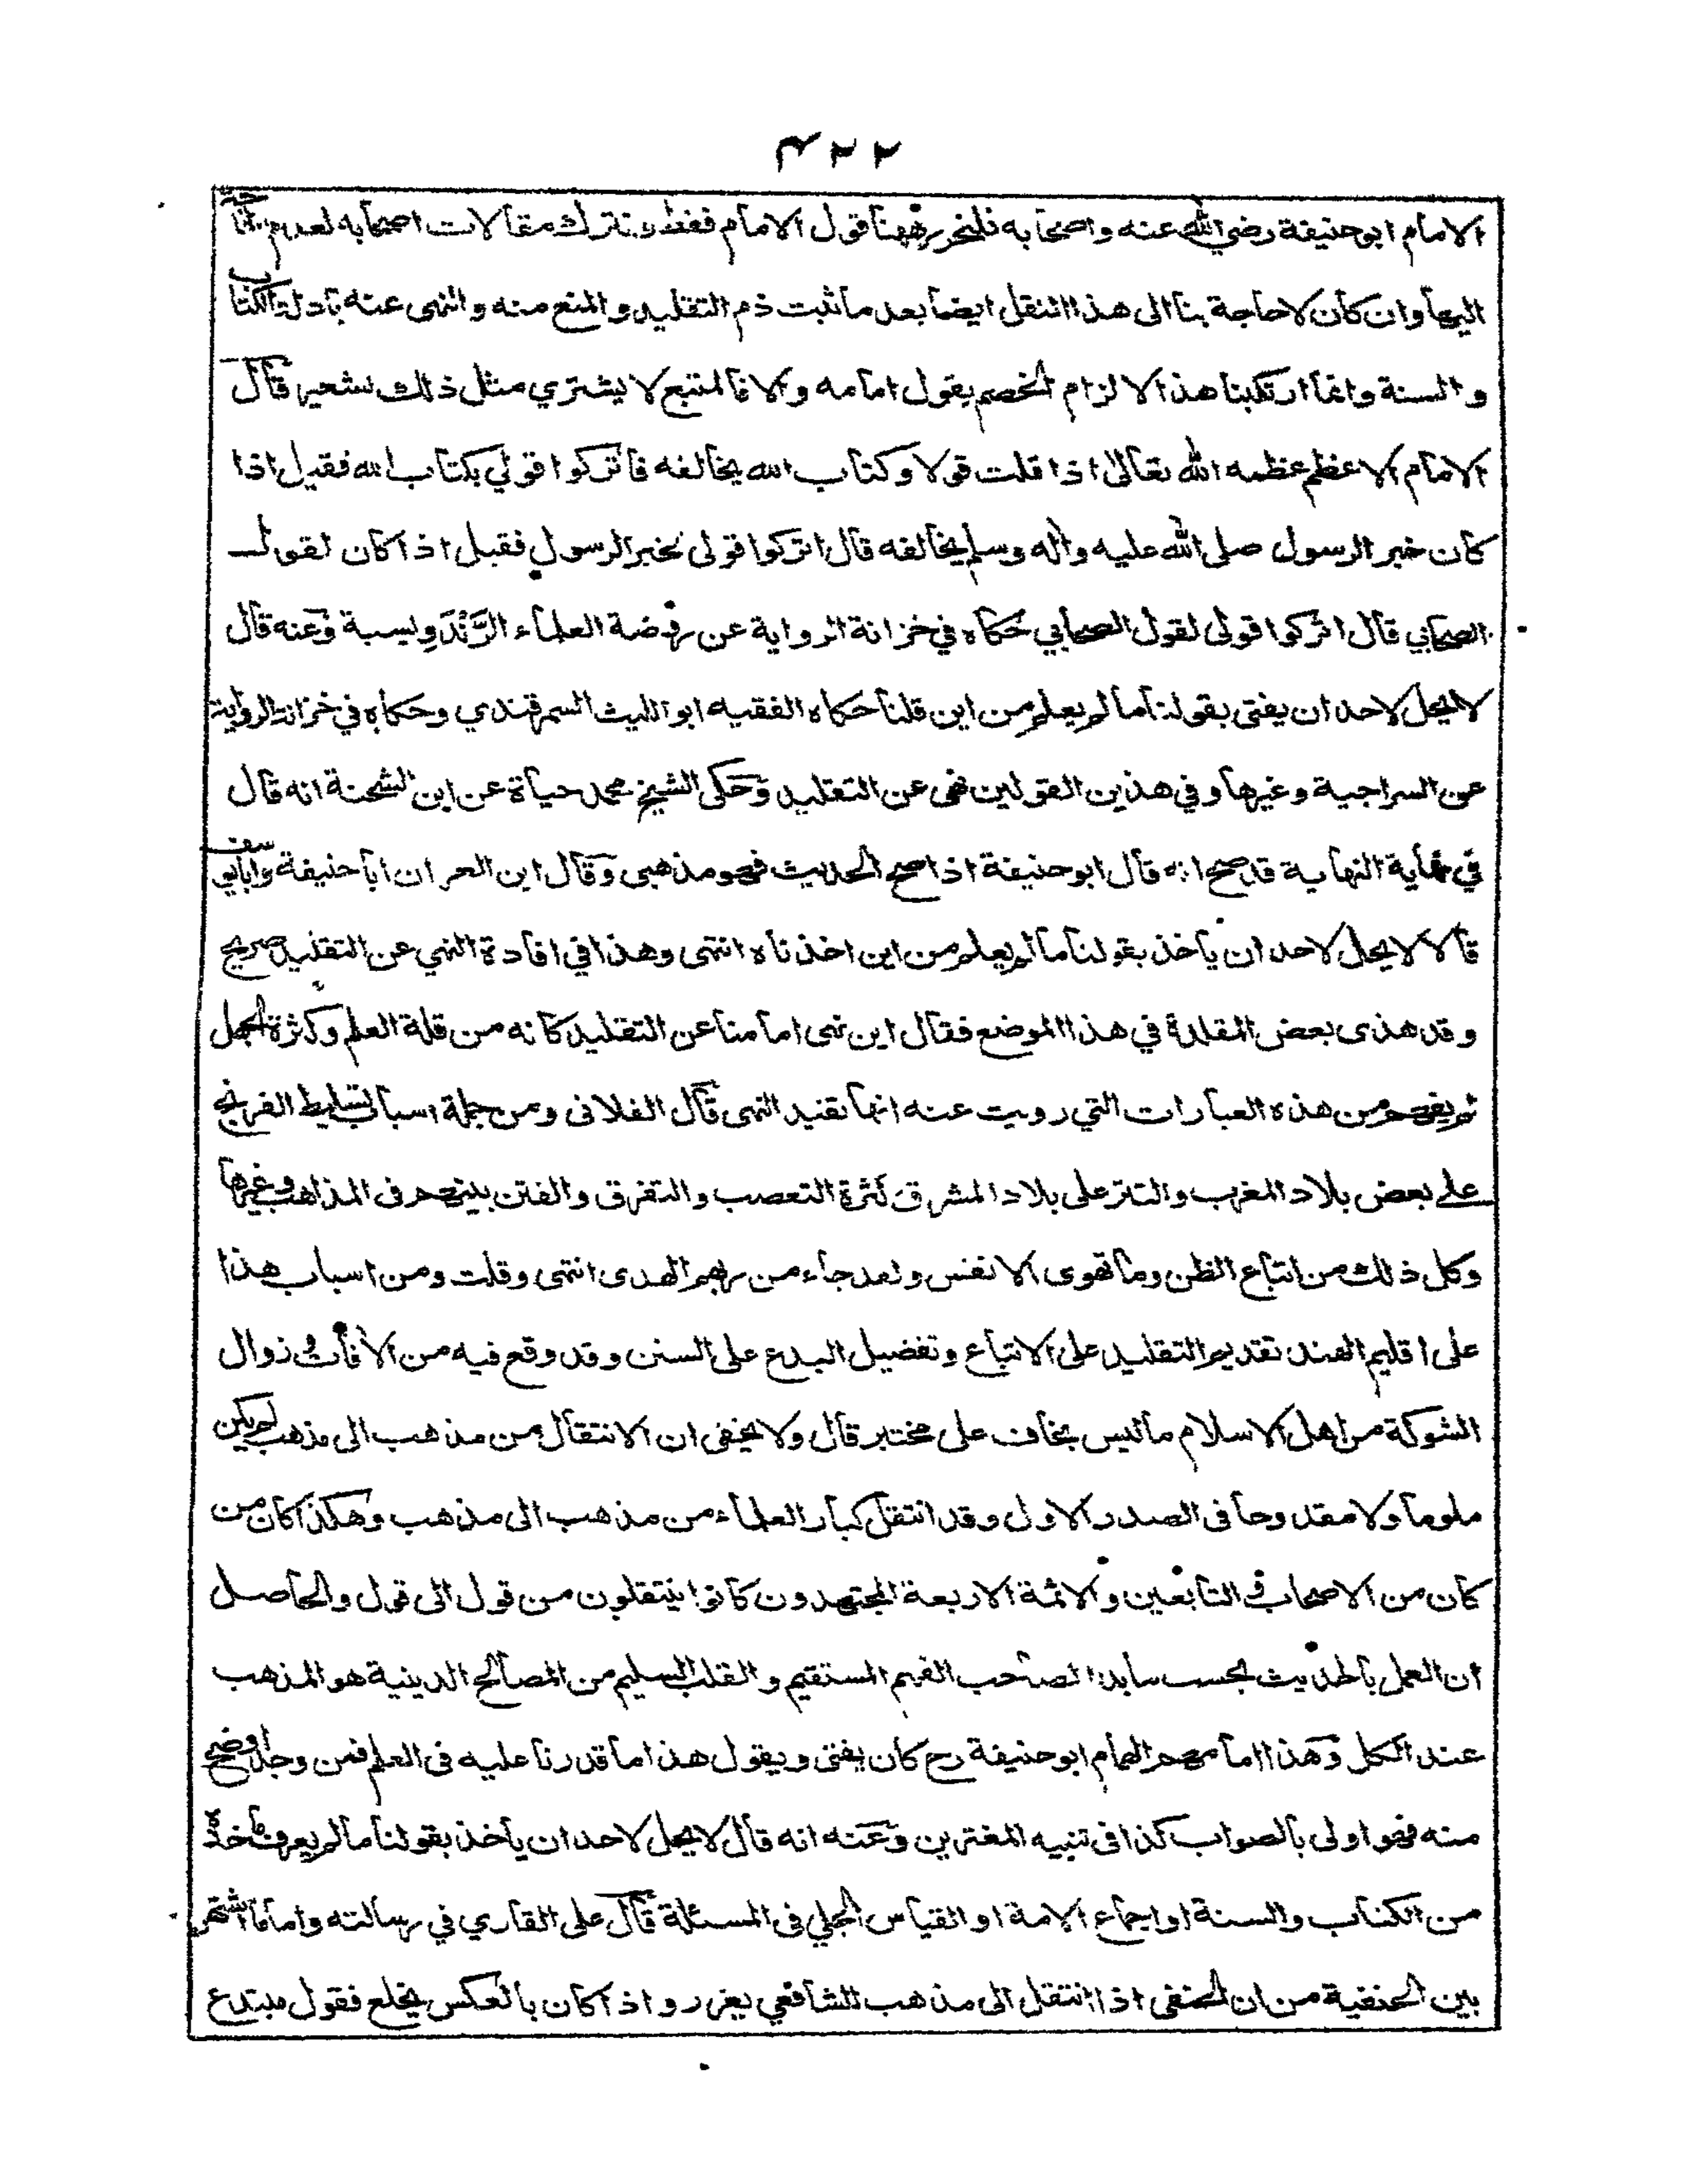 ٤٢٢
الامام ابوحنيفة رضي الله عنه واصحابه فلنحرر ههنا قول الامام فقط ونترك مقالات اصحابه لعدم حاجتنا
اليها وان كان لاحاجة بنا الى هذا النقل ايضا بعد ما ثبت ذم التقليد والمنع منه والنهى عنه بادلة الكتاب
والسنة وانما ارتكبنا هذا لالزام الخصم بقول امامه والا فالمتبع لا يشتري مثل ذلك بشعير قال
الامام الاعظم عظمه الله تعالى اذا قلت قولا وكتاب الله يخالفه فاتركوا قولي بكتاب الله فقيل اذا
كان خبر الرسول صلى الله عليه واله وسلم يخالفه قال اتركوا قولى بخبر الرسول فقيل اذا كان لقول
الصحابي قال اتركوا قولى لقول الصحابي حكاه في خزانة الرواية عن روضة العلماء الزندويسية وعنه قال
لا يحل لاحد ان يفتى بقولنا مالم يعلم من اين قلنا حكاه الفقيه ابو الليث السمرقندي وحكاه في خزانة الرواية
عن السراجية وغيرها وفي هذين القولين نهى عن التقليد وحكى الشيخ محمد حياة عن ابن الشحنة انه قال
في نهاية النهاية قد صح انه قال ابوحنيفة اذا صح الحديث فهو مذهبى وقال ابن العز ان ابا حنيفة وابايوسف
قالا لا يحل لاحد ان يأخذ بقولنا مالم يعلم من اين اخذناه انتهى وهذا في افادة النهي عن التقليد صريح
وقد هذى بعض المقلدة في هذا الموضع فقال اين نهى امامنا عن التقليد كانه من قلة العلم وكثرة الجهل
لم يفهم من هذه العبارات التي رويت عنه انها تفيد النهى قال الفلانى ومن جملة اسباب تسليط الفرنج
على بعض بلاد المغرب والتتر على بلاد المشرق كثرة التعصب والتفرق والفتن بينهم فى المذاهب وغيرها
وكل ذلك من اتباع الظن وما تهوى الانفس ولقد جاءهم من ربهم الهدى انتهى وقلت ومن اسباب هذا
على اقليم الهند تقديم التقليد على الاتباع وتفضيل البدع على السنن وقد وقع فيه من الأفات وزوال
الشوكة من اهل الاسلام ماليس بخاف على مختبر قال ولا يخفى ان الانتقال من مذهب الى مذهب لم يكن
ملوما ولا مقدوحا فى الصدر الاول وقد انتقل كبار العلماء من مذهب الى مذهب وهكذا كان من
كان من الاصحاب والتابعين والائمة الاربعة المجتهدون كانوا ينتقلون من قول الى قول والحاصل
ان العمل بالحديث بحسب ما بدا لصاحب الفهم المستقيم والقلب السليم من المصالح الدينية هو المذهب
عند الكل وهذا امامهم الهمام ابوحنيفة رح كان يفتى ويقول هذا ما قدرنا عليه فى العلم فمن وجد اوضح
منه فهو اولى بالصواب كذا فى تنبيه المغترين وعنه انه قال لا يحل لاحد ان يأخذ بقولنا مالم يعرف مأخذه
من الكتاب والسنة او اجماع الامة او القياس الجلي فى المسئلة قال على القاري في رسالته واما ما اشتهر
بين الحنفية من ان الحنفى اذا انتقل الى مذهب الشافعي يعزر واذا كان بالعكس يخلع فقول مبتدع